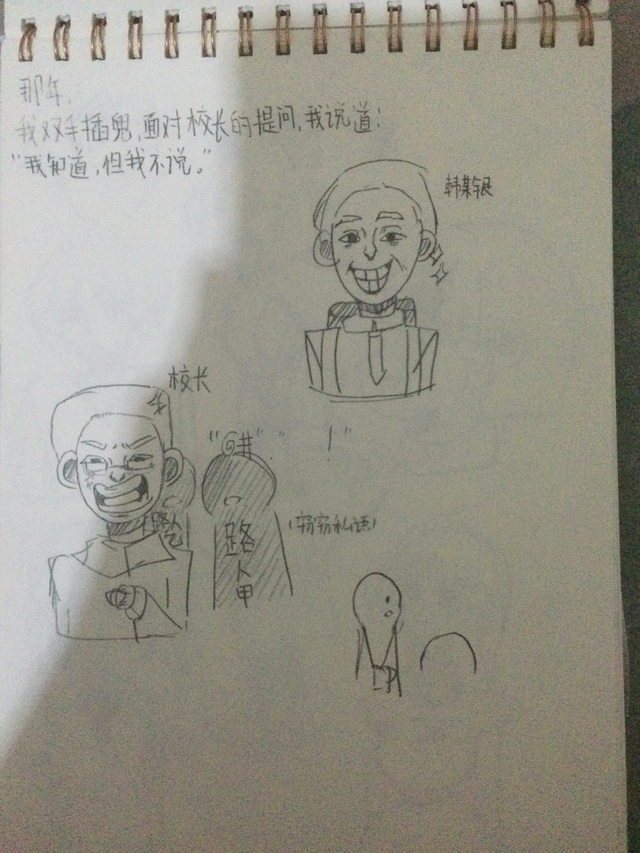 那年,
我双手插兜,面对校长的提问,我说道:
“我知道,但我不说。”
韩某银
校长
“@#” . . . . !”
路人甲
(窃窃私语)